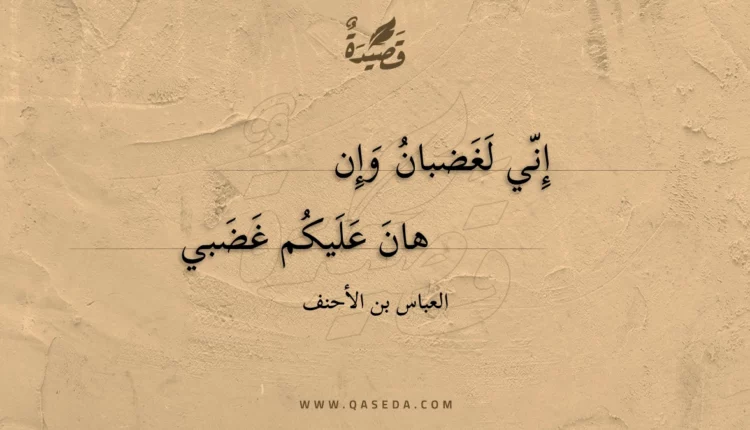 قَصِيدَةٌ
إِنّي لَغَضبانُ وَإِن
هانَ عَلَيكُم غَضَبي
العباس بن الأحنف
WWW.QASEDA.COM